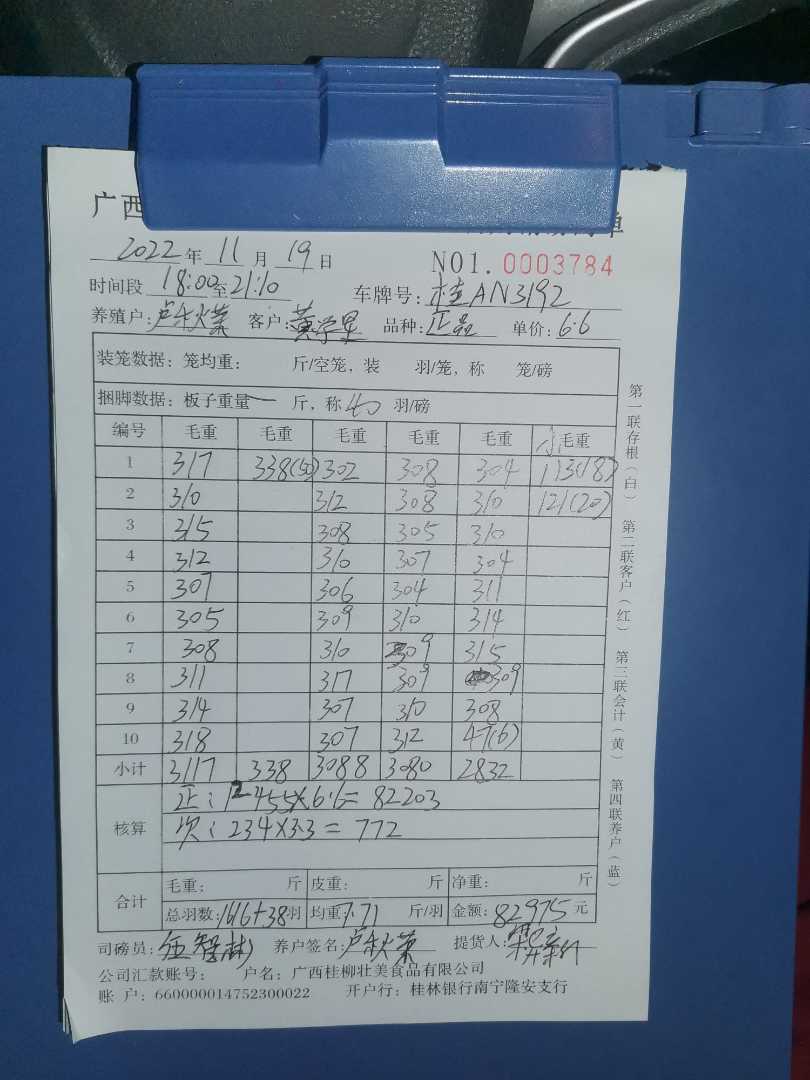 广西
2022年11月19日 NO1.0003784
时间段 18:00至21:10 车牌号:桂AN3192
养殖户:卢秋荣 客户:黄学星 品种: 单价:6.6
装笼数据:笼均重: 斤/空笼,装 羽/笼,称 笼/磅
捆脚数据:板子重量一 斤,称40羽/磅
编号 毛重 毛重 毛重 毛重 毛重 毛重
1 317 338(50) 302 308 304 113(18)
2 310 312 308 310 121(20)
3 315 308 305 310
4 312 310 307 304
5 307 306 304 311
6 305 309 310 314
7 308 310 309 315
8 311 317 309 309
9 314 307 310 308
10 318 307 312 47(6)
小计 3117 338 3088 3080 2832
核算
正:12455×6.6=82203
次:234×3.3=772
合计
毛重: 斤 皮重: 斤 净重: 斤
总羽数:1616+38羽 均重:7.71 斤/羽 金额:82975元
司磅员:伍智林 养户签名:卢秋荣 提货人:
公司汇款账号: 户名:广西桂柳壮美食品有限公司
账 户:660000014752300022 开户行:桂林银行南宁隆安支行
第一联存根(白) 第二联客户(红) 第三联会计(黄) 第四联养户(蓝)